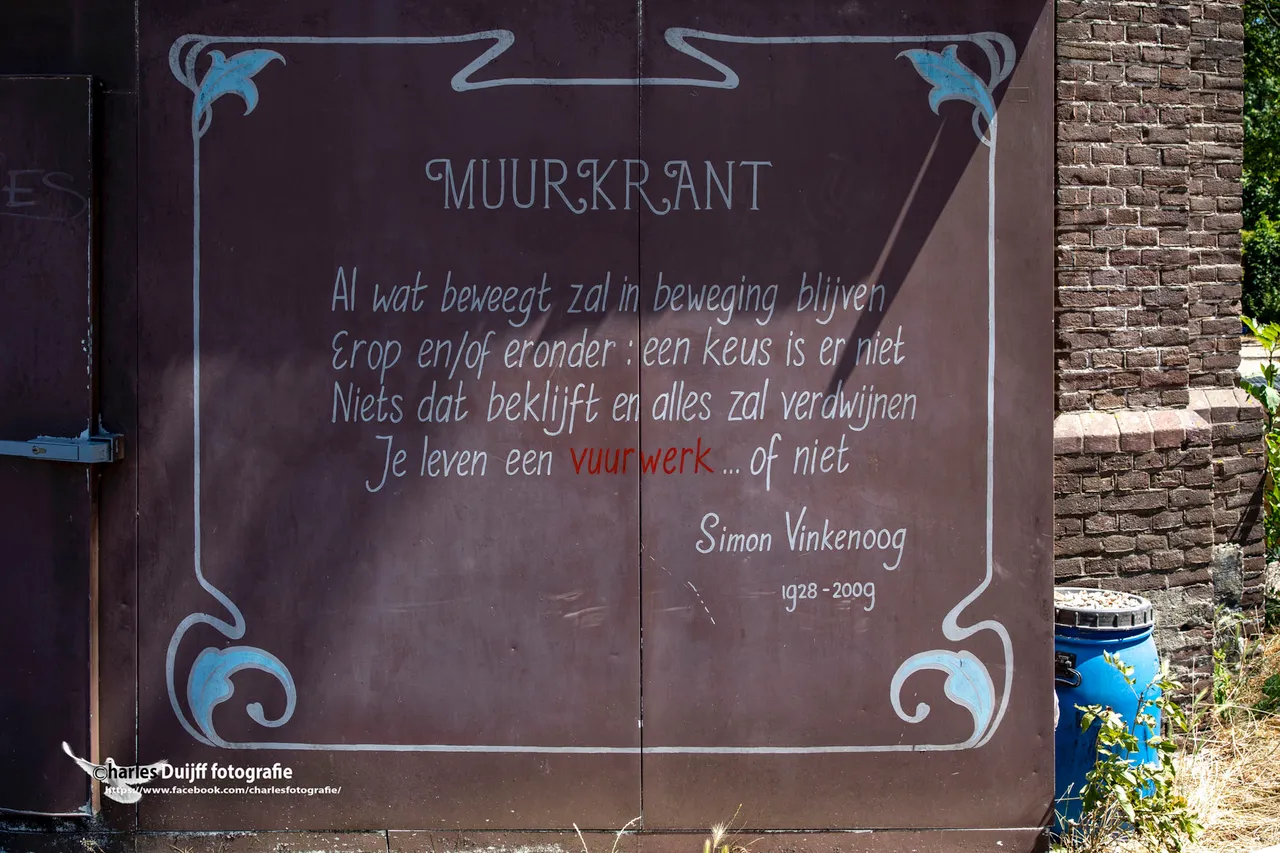 ES
MUURKRANT
Al wat beweegt zal in beweging blijven
Erop en/of eronder : een keus is er niet
Niets dat beklijft en alles zal verdwijnen
Je leven een vuurwerk ... of niet
Simon Vinkenoog
1928 - 2009
©harles Duijff fotografie
https://www.facebook.com/charlesfotografie/